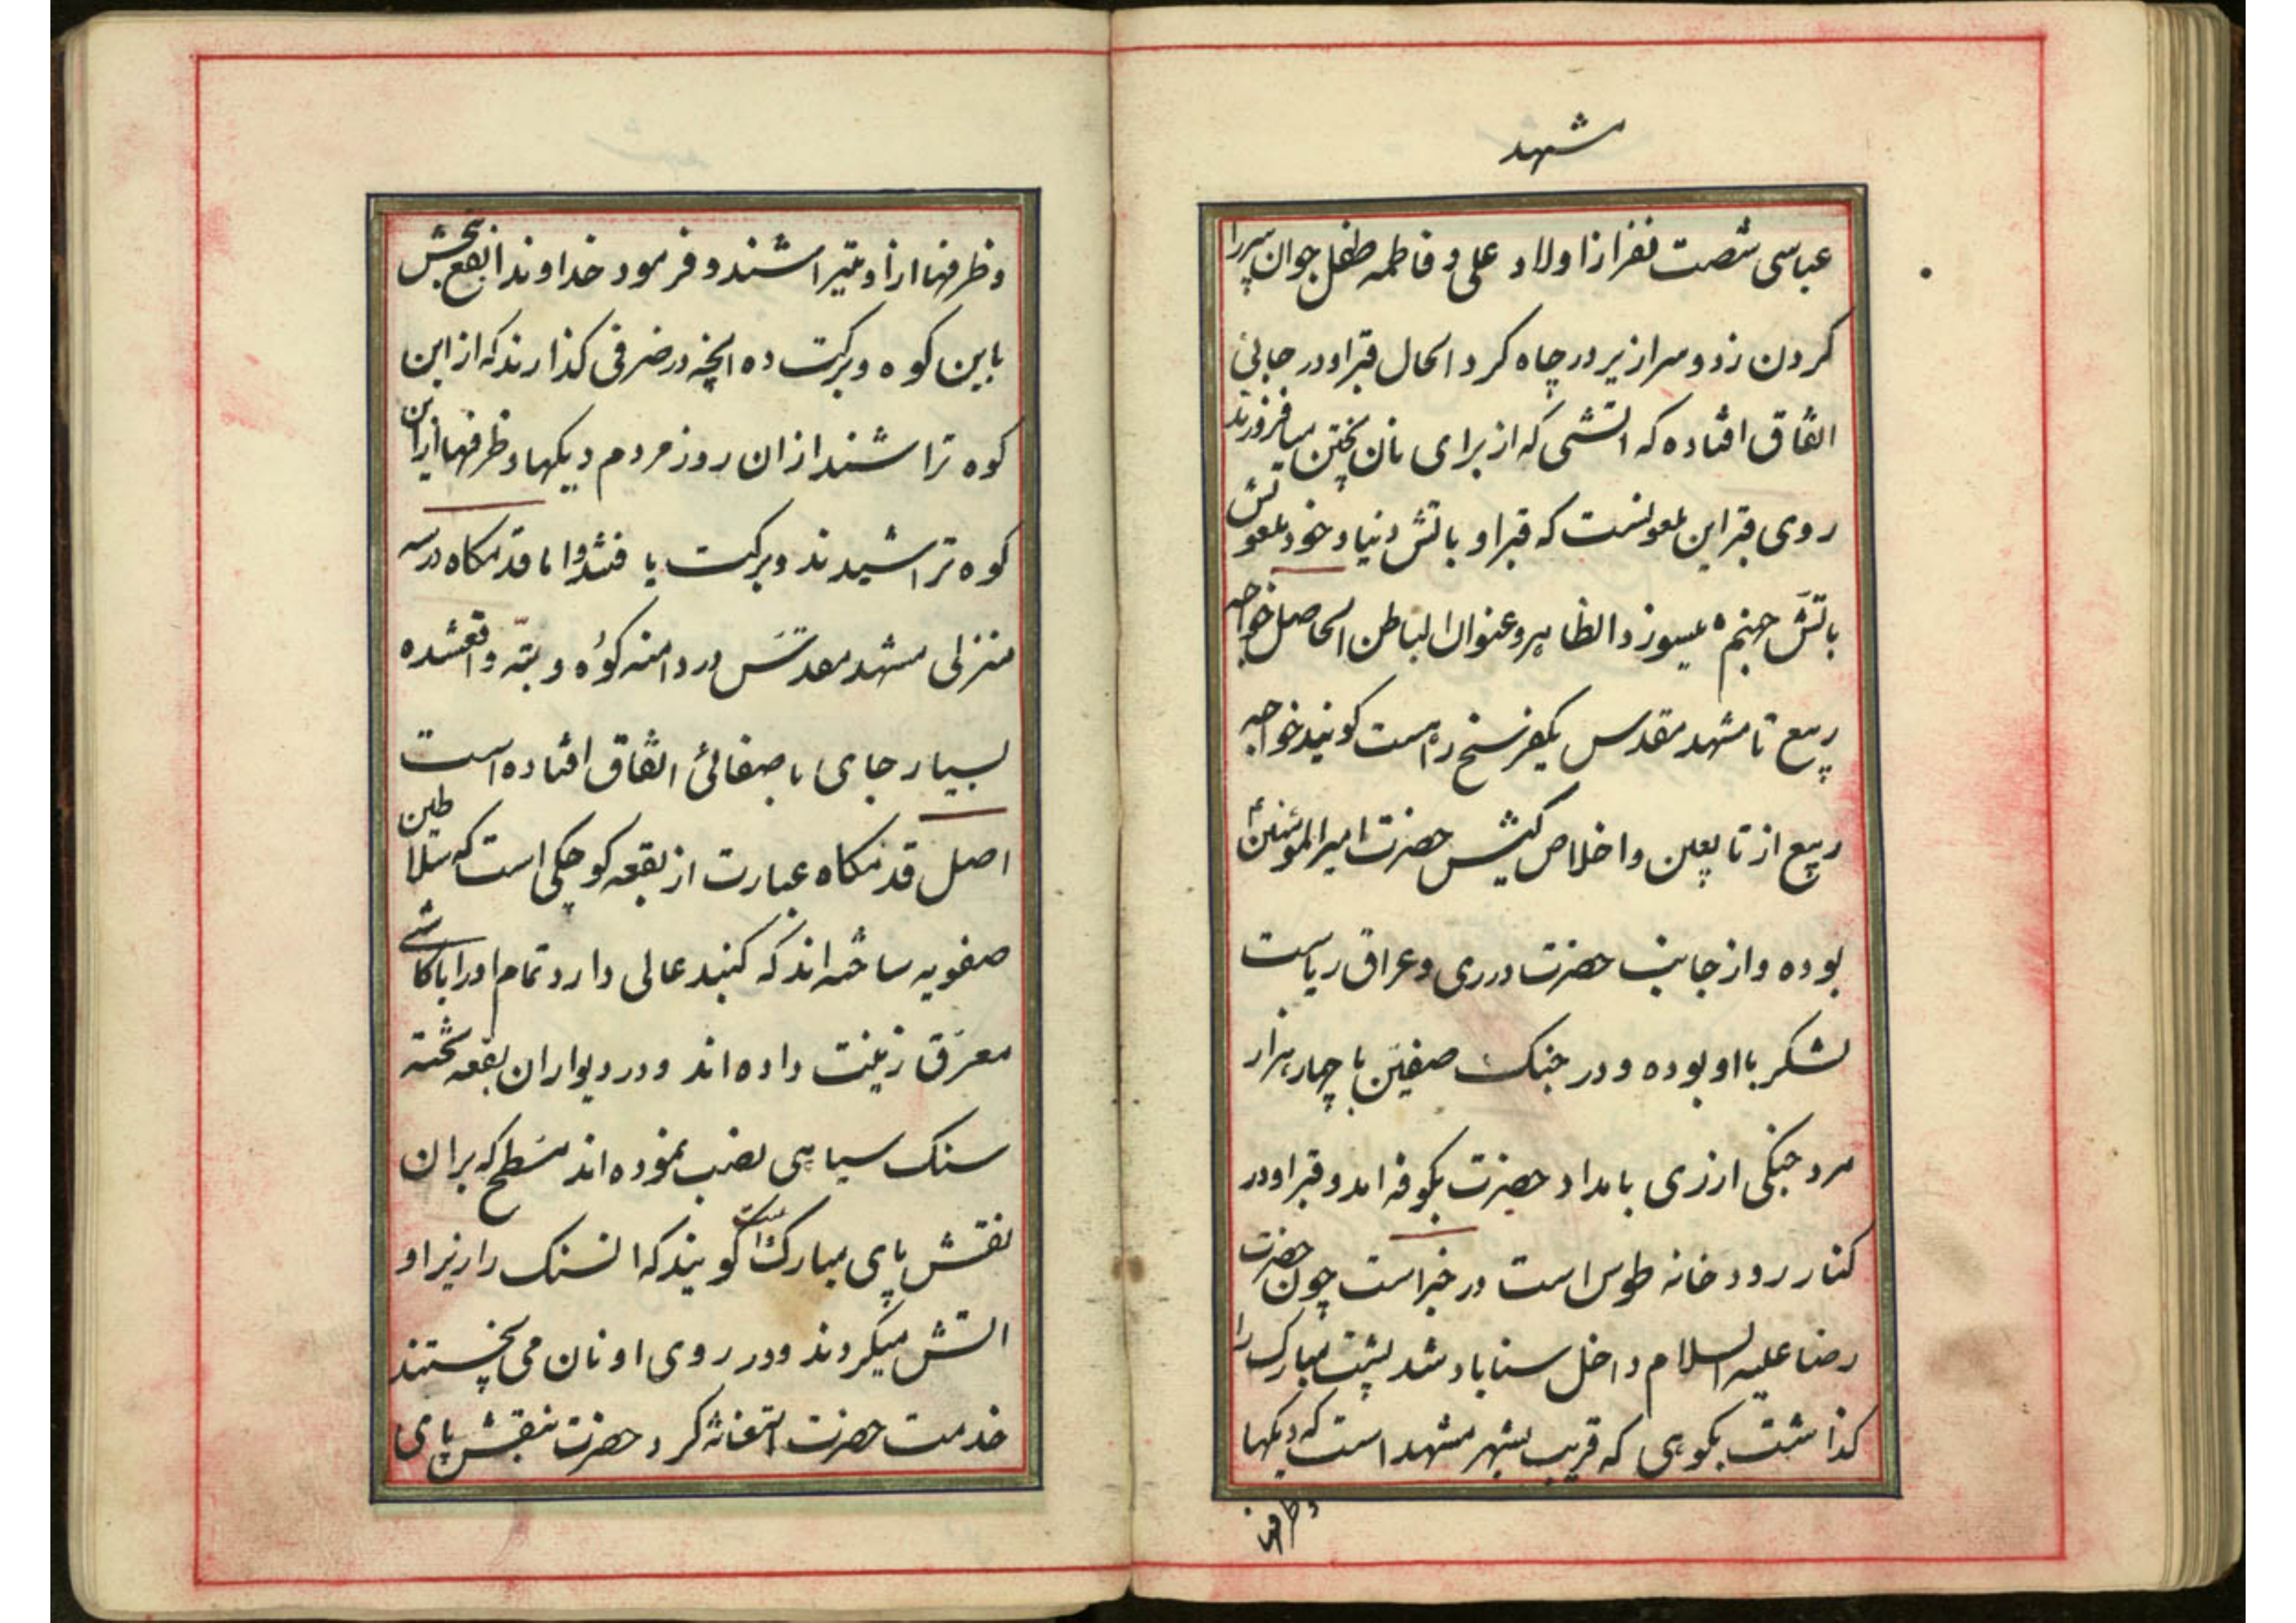 مشهد
عباسی شصت نفر از اولاد علی و فاطمه طفل جوان پیر را
کردن زد و سرازیر در چاه کرد الحال قبر او در جائی
اتفاق افتاده که اتشی که از برای نان پختن میافروزند
روی قبر این ملعونست که قبر او باتش دنیا و خود ملعونش
باتش جهنم میسوزد الظاهر و عنوان الباطن الحاصل خواجه
ربیع تا مشهد مقدس یکفرسخ راهست کویند خواجه
ربیع از تابعین و اخلاص کیش حضرت امیرالمؤمنین ع
بوده و از جانب حضرت در ری و عراق ریاست
لشکر با او بوده و در جنک صفین با چهار هزار
مرد جنکی از ری بامداد حضرت بکوفه امد و قبر او در
کنار رودخانه طوس است در خبر است چون حضرت
رضا علیه السلام داخل سناباد شد پشت مبارک را
کذاشت بکوهی که قریب بشهر مشهد است که دیکها
وظرفها
وظرفها از او میتراشند و فرمود خداوندا نفع بخش
باین کوه و برکت ده انچه در ضرفی کذارند که از این
کوه تراشند از ان روز مردم دیکها و ظرفها از این
کوه تراشیدند و برکت یافتند و اما قدمکاه در سه
منزلی مشهد مقدس در دامنه کوه و تپه واقعشده
بسیار جای با صفائی اتفاق افتاده است
اصل قدمکاه عبارت از بقعه کوچکی است که سلاطین
صفویه ساخته اند که کنبد عالی دارد تمام او را با کاشی
معرق زینت داده اند و در دیوار ان بقعه تخته
سنک سیاهی نصب نموده اند مسطح که بر ان
نقش پای مبارک است کویند که انسنک را زیر او
اتش میکردند و در روی او نان می پختند
خدمت حضرت استغاثه کرد حضرت بنقش پای